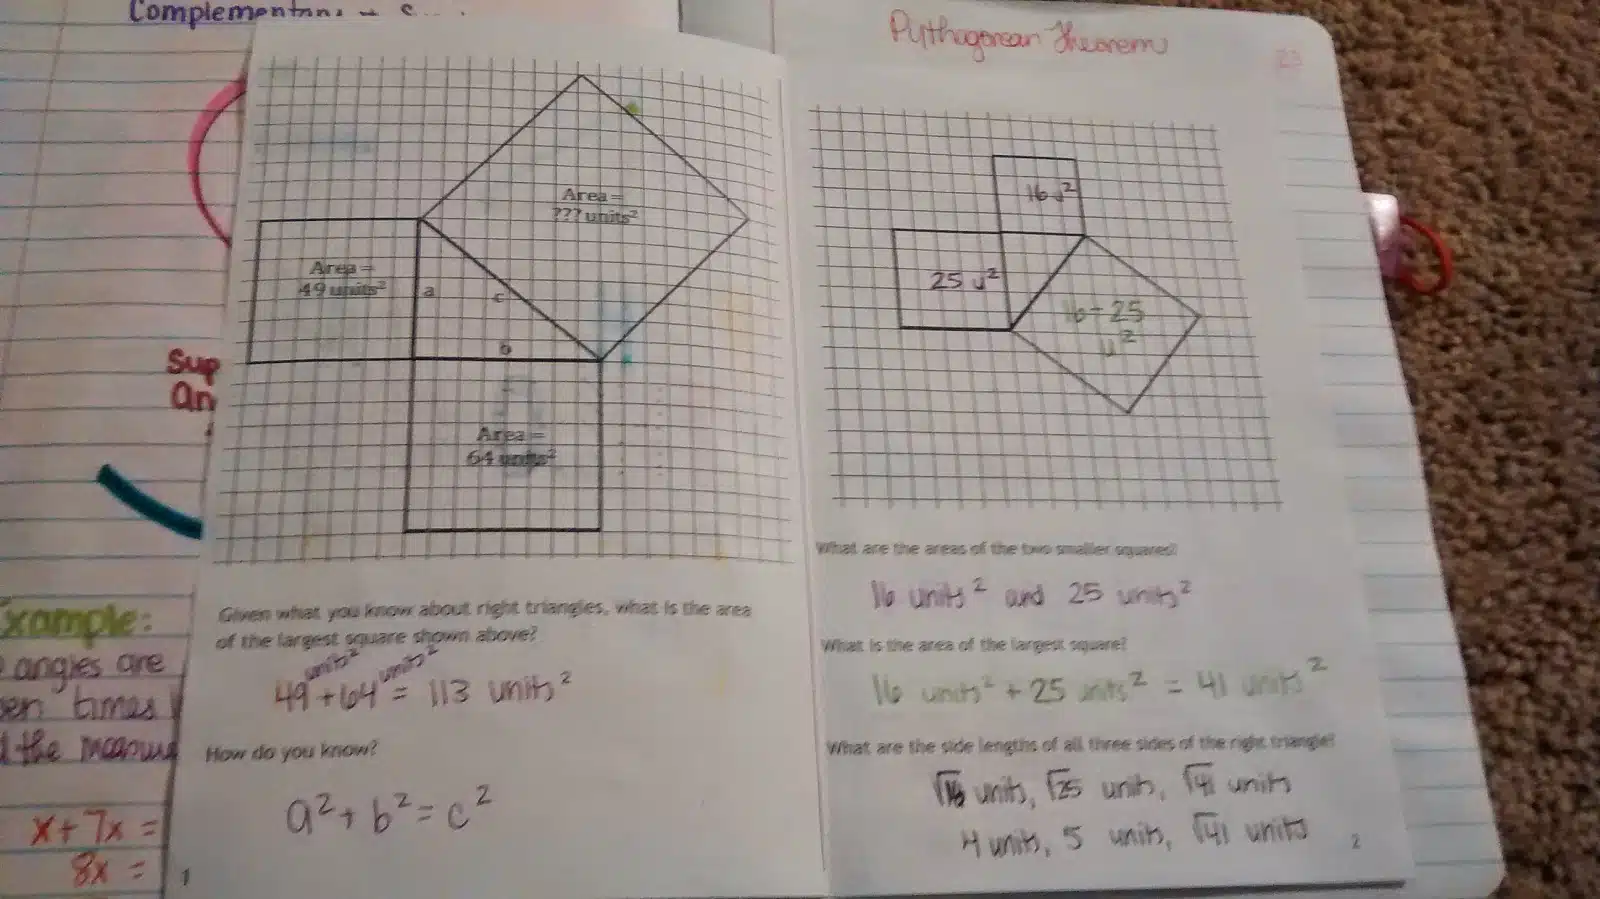 Complementary
Sup
An
Example:
angles are
times
the measure
x+7x =
8x =
Area =
??? units²
Area =
49 units²
a
c
b
Area =
64 units²
Given what you know about right triangles, what is the area
of the largest square shown above?
units² units²
49 + 64 = 113 units²
How do you know?
a² + b² = c²
1
Pythagorean Theorem
23
16 u²
25 u²
16+25
u²
What are the areas of the two smaller squares?
16 units² and 25 units²
What is the area of the largest square?
16 units² + 25 units² = 41 units²
What are the side lengths of all three sides of the right triangle?
√16 units, √25 units, √41 units
4 units, 5 units, √41 units
2